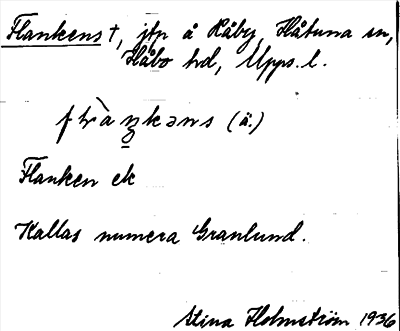 Flankens †, jtp å Råby, Håtuna sn,
Håbo hd, Upps. l.
flàŋkəns (ä.)
Flanken ek
Kallas numera Granlund.
Stina Holmström 1936